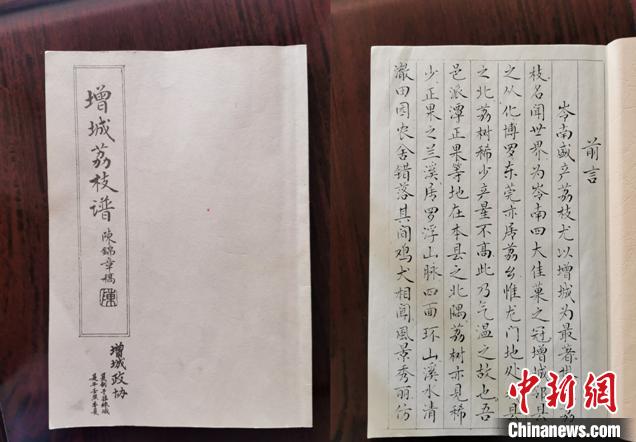 增城荔枝谱
陳錦章稿
陳
增城政协
前言
岑南盛产荔枝尤以增城为最著
枝名闻世界为岑南四大佳菓之冠增城邻县
之从化博罗东莞亦居荔乡惟龙门地处 县
之北荔树稀少产量不高此乃气温之故也吾
邑派潭正果等地在本县之北隅荔树亦见稀
少正果之兰溪居罗浮山脉四面环山溪水清
澈田园农舍错落其间鸡犬相闻風景秀丽仿
中新网
Chinanews.com